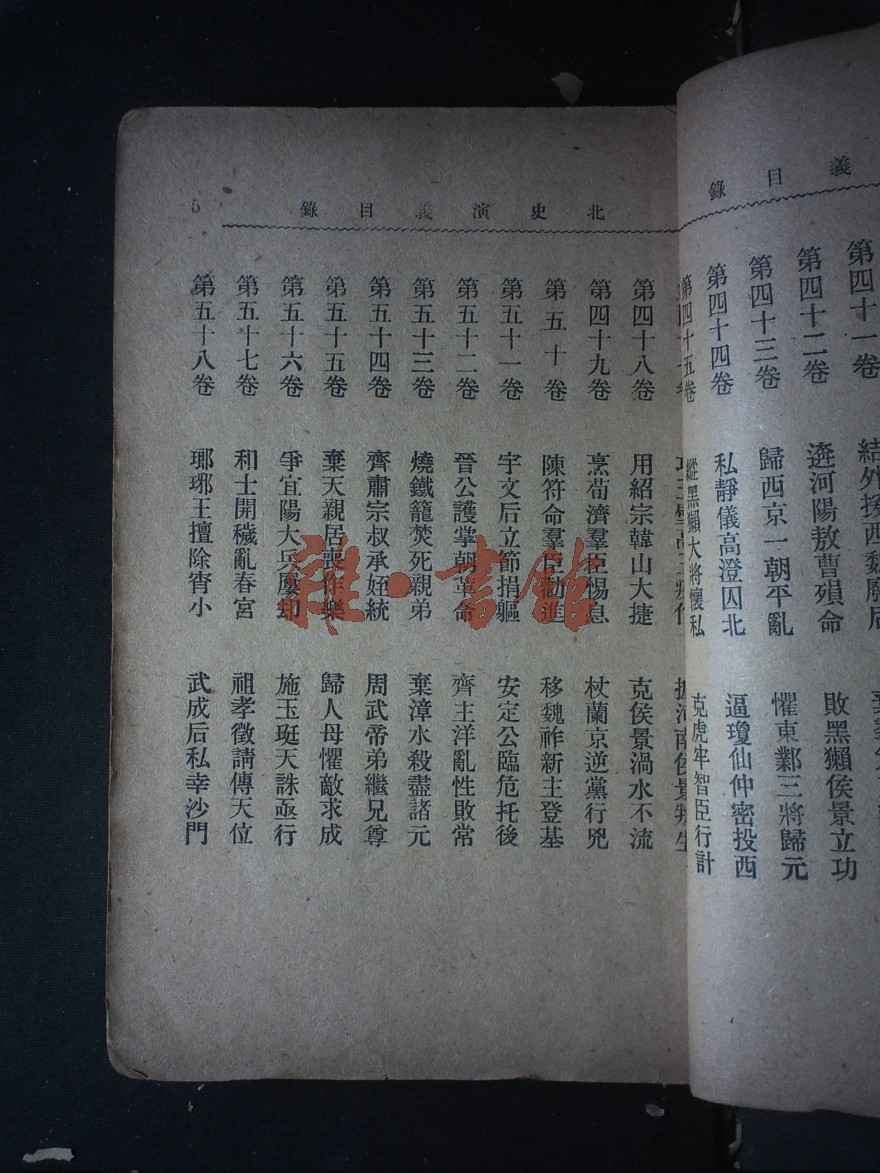 義目錄
第四十一卷 結外援西魏廢后
第四十二卷 逩河陽敖曹殞命 敗黑獺侯景立功
第四十三卷 歸西京一朝平亂 懼東鄴三將歸元
第四十四卷 私靜儀高澄囚北 逼瓊仙仲密投西
第四十五卷 縱黑獺大將懷私 克虎牢智臣行計
北史演義目錄 5
第四十八卷 用紹宗韓山大捷 克侯景渦水不流
第四十九卷 烹荀濟羣臣惕息 杖蘭京逆黨行兇
第五十卷 陳符命羣臣勸進 移魏祚新主登基
第五十一卷 宇文后立節捐軀 安定公臨危托後
第五十二卷 晉公護掌朝革命 齊主洋亂性敗常
第五十三卷 燒鐵籠焚死親弟 棄漳水殺盡諸元
第五十四卷 齊肅宗叔承姪統 周武帝弟繼兄尊
第五十五卷 棄天親居喪作樂 歸人母懼敵求成
第五十六卷 爭宜陽大兵屢却 施玉珽天誅亟行
第五十七卷 和士開穢亂春宮 祖孝徵請傳天位
第五十八卷 瑯琊王擅除宵小 武成后私幸沙門
雜·書館